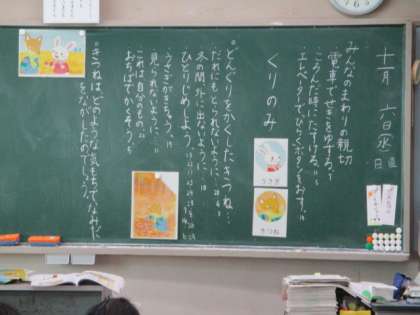 十一月六日(水)
日直
みんなのまわりの親切
電車でせきをゆずる。
こうんだ時にたすける。
エレベーターでひらくボタンをおす。
くりのみ
うさぎ
きつね
どんぐりをかくしたきつね…
だれにもとられないように、
冬の間、外に出ないように、
ひとりじめしよう。
うさぎがきちゃう。
見られないように、
これは自分のもの。
おちばでかくそう。
きつねはどのような気もちでなみだ
をながしたのでしょう。